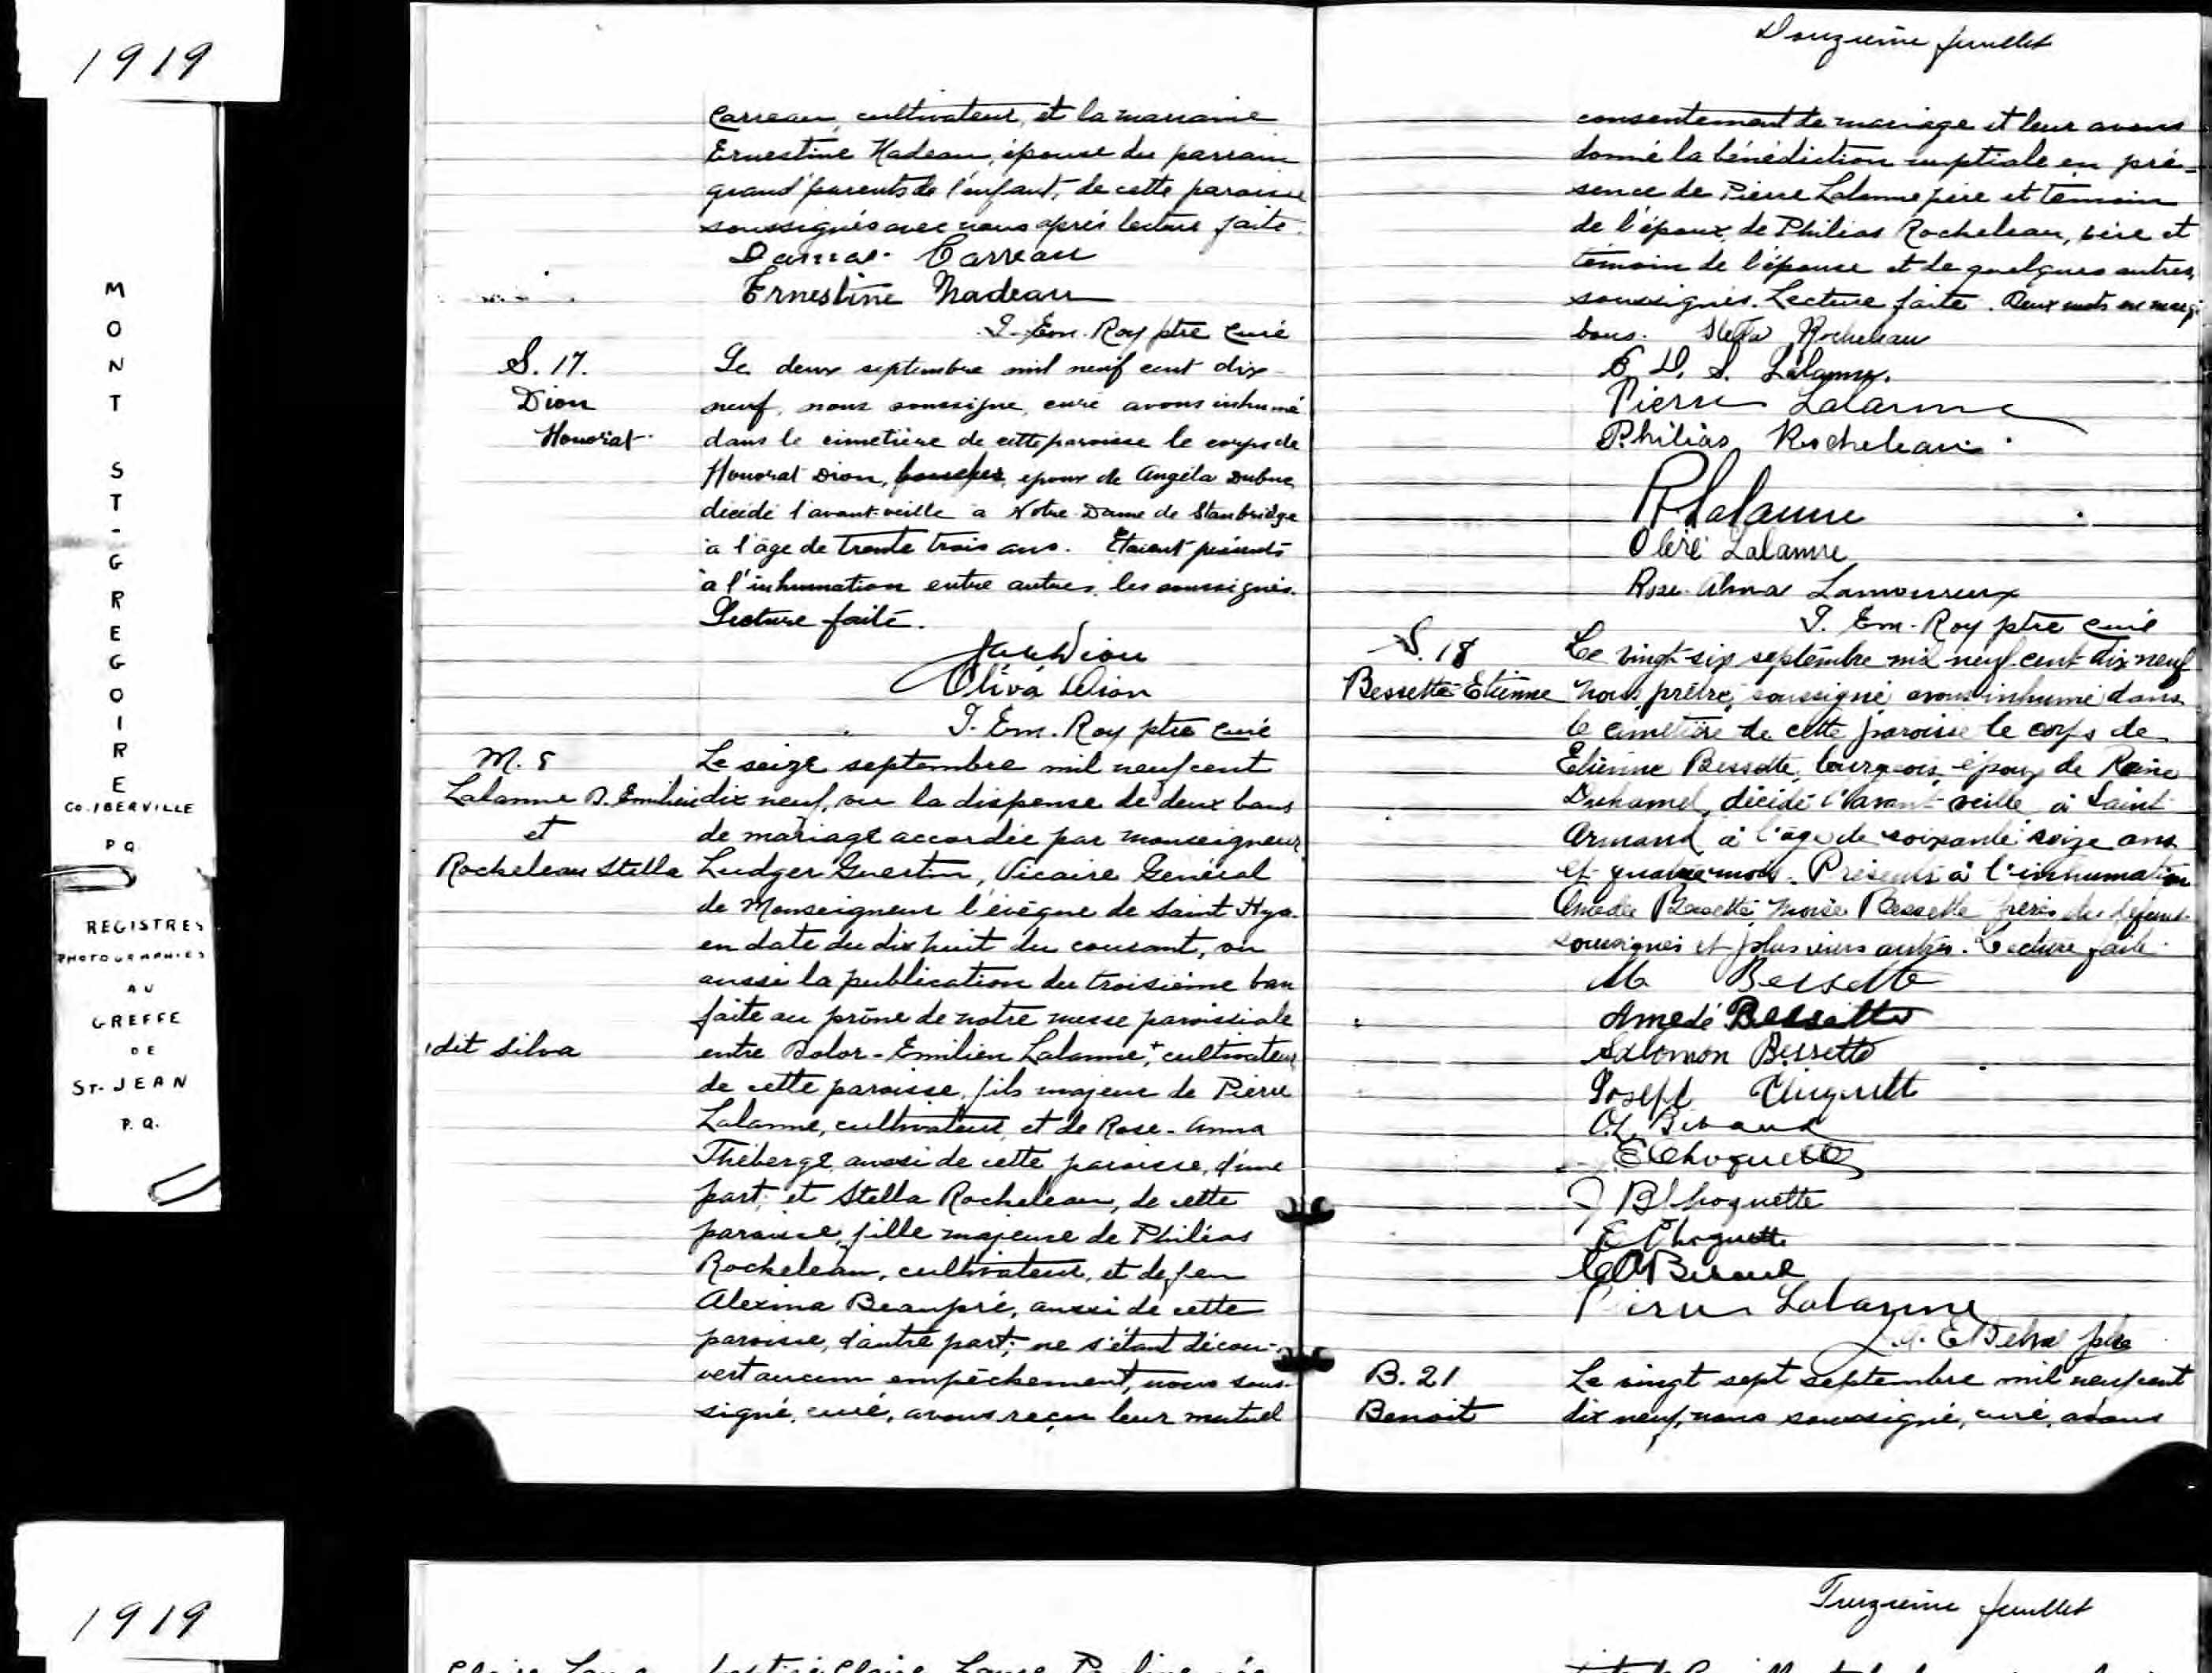 1919
MONT ST-GREGOIRE
CO. IBERVILLE
P Q.
REGISTRES
PHOTOGRAPHIES
AU
GREFFE
DE
ST-JEAN
P.Q.
Carreau, cultivateur, et la marraine
Ernestine Nadeau, épouse du parrain
grand'parents de l'enfant, de cette paroisse
soussignés avec nous après lecture faite.
Damas Carreau
Ernestine Nadeau
J. Em. Roy ptre curé
S. 17.
Dion
Honorat
Le deux septembre mil neuf cent dix
neuf, nous soussigné, curé avons inhumé
dans le cimetière de cette paroisse le corps de
Honorat Dion, boucher, époux de Angéla Dubuc
décédé l'avant-veille à Notre-Dame de Stanbridge
à l'âge de trente trois ans. Étaient présents
à l'inhumation entre autres, les soussignés.
Lecture faite.
Dion
Oliva Dion
J. Em. Roy ptre curé
M. 8
Lalanne D. Emilien
et
Rocheleau Stella
Le seize septembre mil neuf cent
dix neuf, vu la dispense de deux bans
de mariage accordée par monseigneur
Ludger Guertin, Vicaire Général
de Monseigneur l'évêque de Saint Hya.
en date du dix huit du courant, vu
aussi la publication du troisième ban
faite au prône de notre messe paroissiale
dit Silva
entre Dolor-Emilien Lalanne + cultivateur
de cette paroisse, fils majeur de Pierre
Lalanne, cultivateur, et de Rose-Anna
Théberge, aussi de cette paroisse, d'une
part; et Stella Rocheleau, de cette
paroisse, fille majeure de Philias
Rocheleau, cultivateur, et de feu
Alexina Beaupré, aussi de cette
paroisse, d'autre part; ne s'étant décou-
vert aucun empêchement, nous sous-
signé, curé, avons reçu leur mutuel
Douzième feuillet
consentement de mariage et leur avons
donné la bénédiction nuptiale en pré-
sence de Pierre Lalanne père et témoin
de l'époux, de Philias Rocheleau, père et
témoin de l'épouse et de quelques autres,
soussignés. Lecture faite. Deux mots en marge
bons. Stella Rocheleau
D. S. Lalanne.
Pierre Lalanne
Philias Rocheleau
Lalanne
Lalanne
Rose-Alma Lamoureux
J. Em. Roy ptre curé
S. 18
Bessette Etienne
Le vingt-six septembre mil neuf cent dix neuf
Nous, prêtre, soussigné avons inhumé dans
le cimetière de cette paroisse le corps de
Etienne Bessette, bourgeois, époux de Reine
Duhamel, décédé l'avant-veille à Saint
Armand à l'âge de soixante seize ans
et quatre mois. Présents à l'inhumation
Amédée Bessette Moïse Bessette frères du défunt
soussignés et plusieurs autres. Lecture faite.
M Bessette
Amedé Bessette
Salomon Bessette
Joseph
E Choquette
J B Choquette
E Choquette
Pierre Lalanne
B. 21
Benoit
Le vingt sept septembre mil neuf cent
dix neuf, nous soussigné, curé, avons
1919
Treizième feuillet